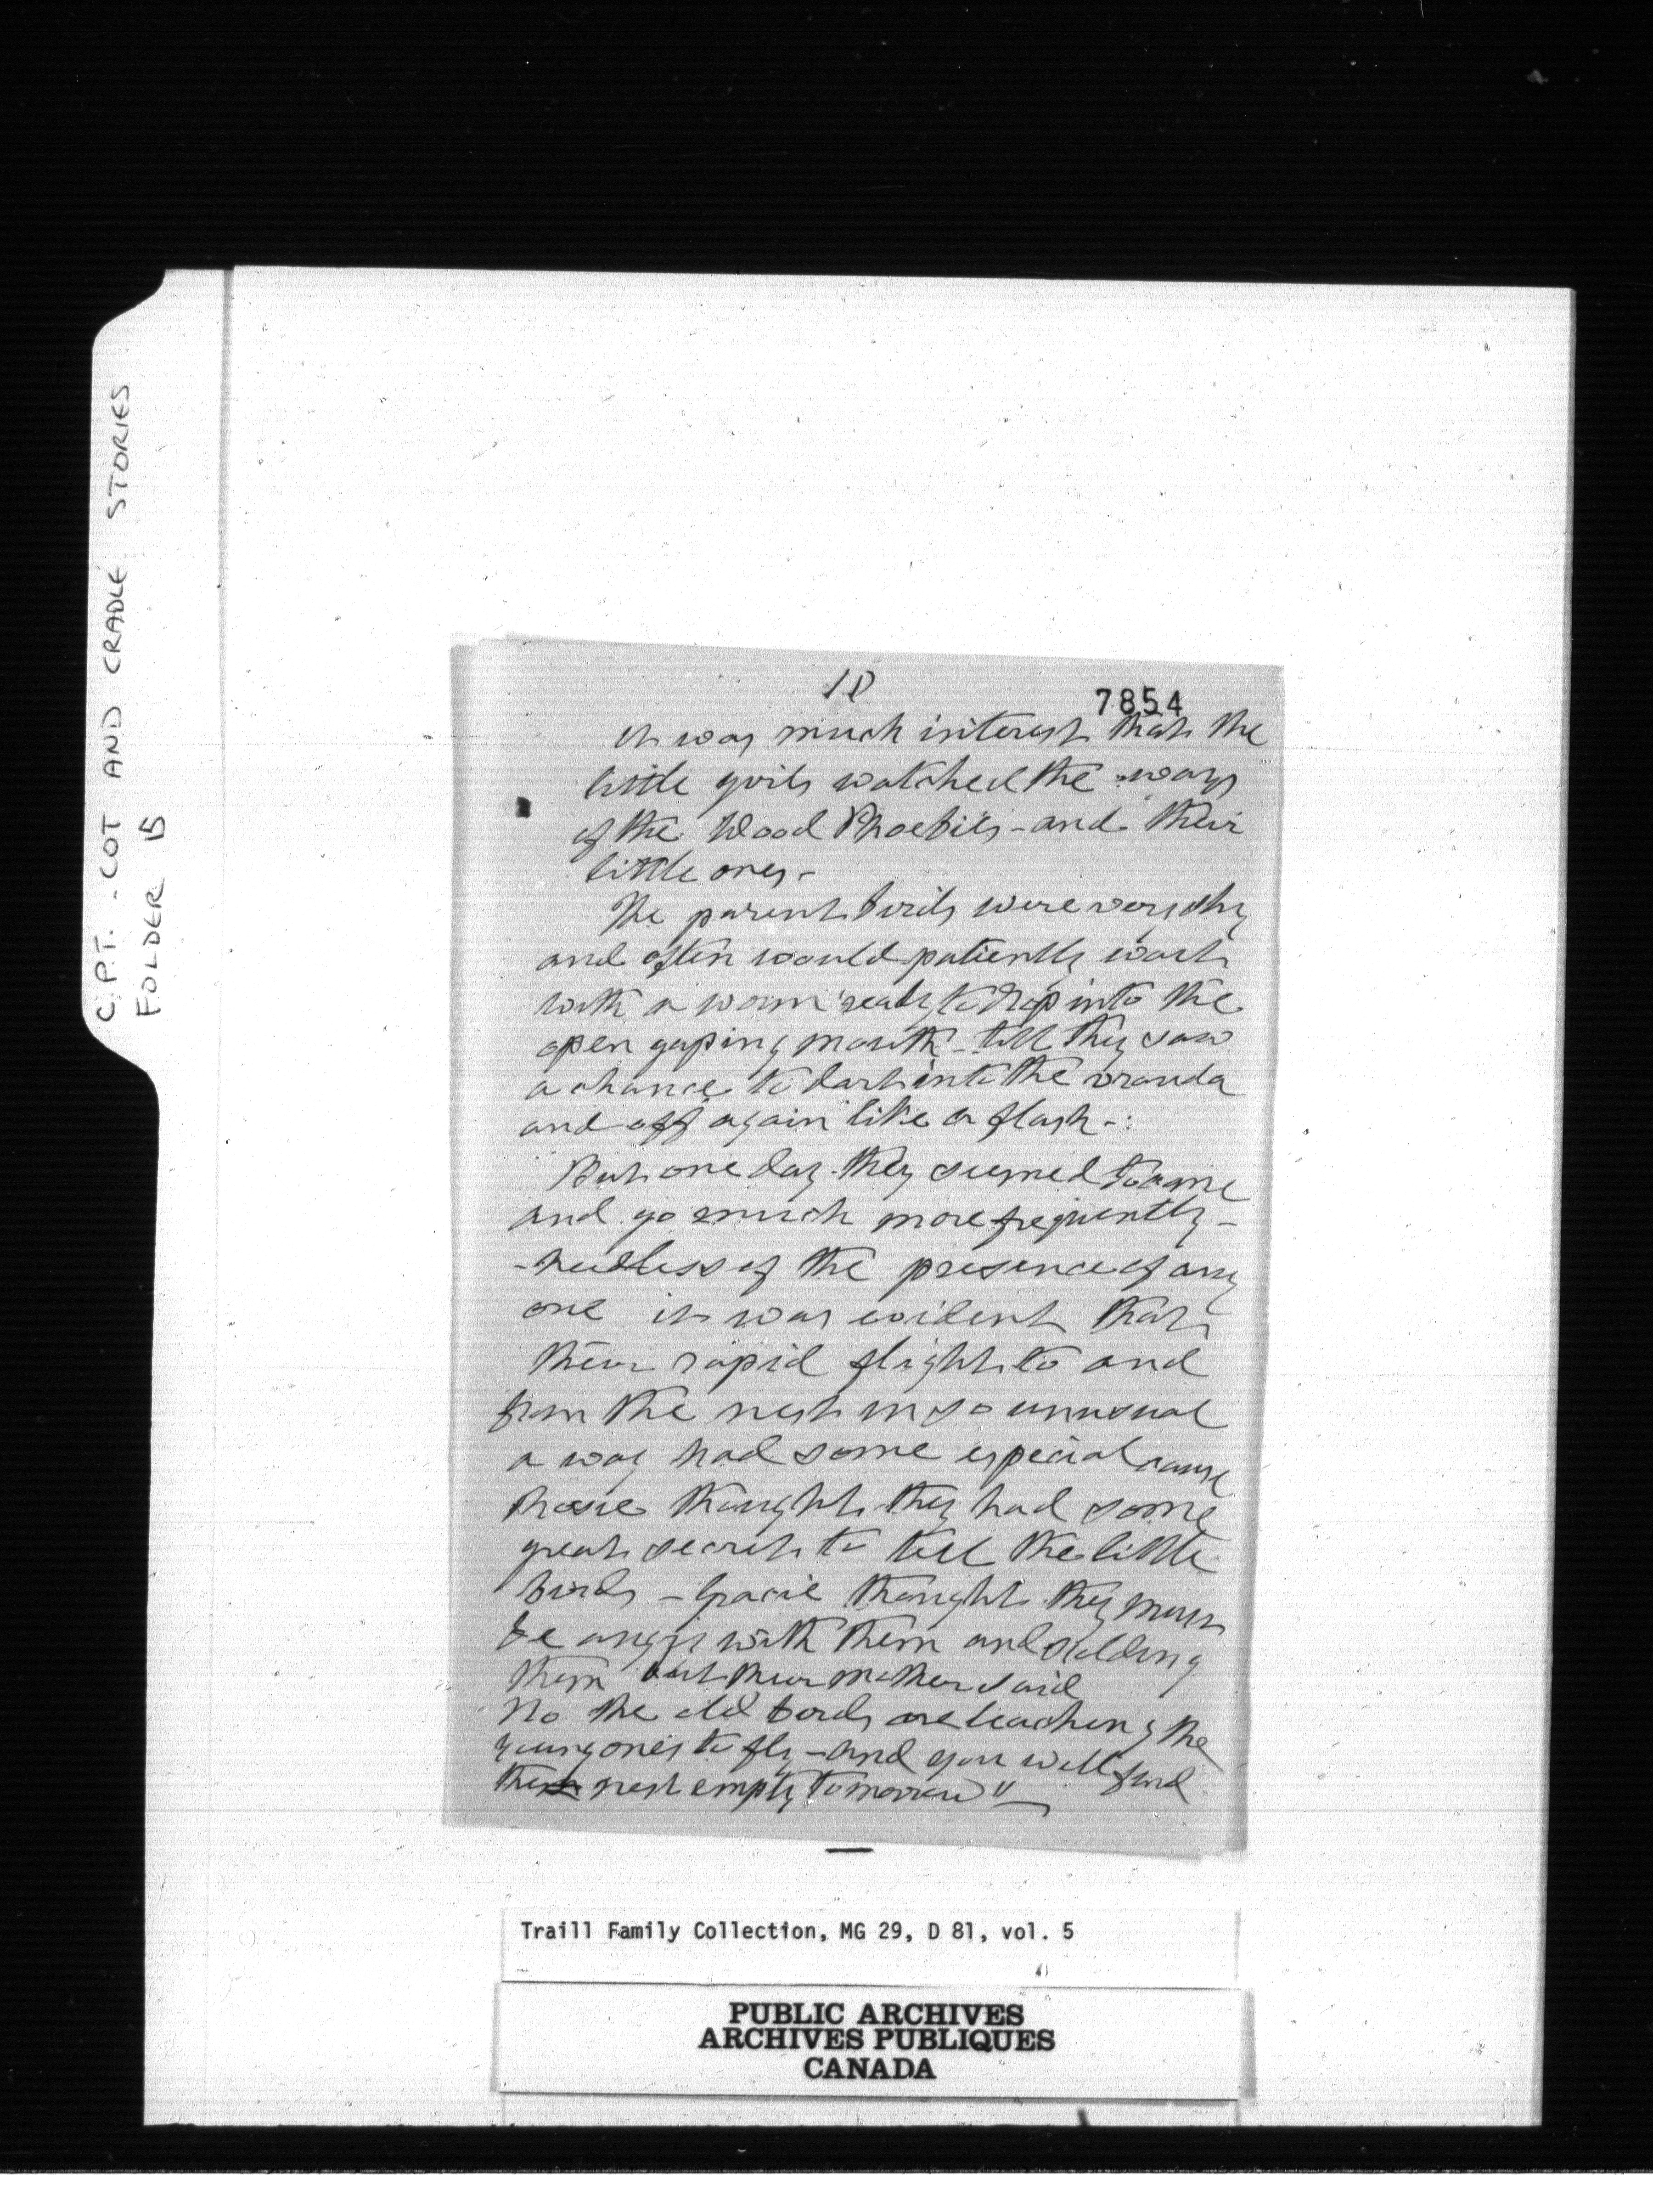 C.P.T. - COT AND CRADLE STORIES
FOLDER 15
10
7854
it was much interest that the
little girls watched the ways
of the Wood Phoebies - and their
little ones -
The parent birds were very shy
and often would patiently wait
with a worm ready to drop into the
open gaping mouth - till they saw
a chance to dart into the vranda
and off again like a flash -
But one day they seemed to come
and go much more frequently -
- heedless of the presence of any
one it was evident that
their rapid flight to and
from the nest in so unusual
a way had some especial cause
thought they had some
great secret to tell the little
birds - Gracie thought they must
be angry with them and scolding
them but their mother said
No the old birds are teaching the
young ones to fly - and you will find
the nest empty tomorrow"
Traill Family Collection, MG 29, D 81, vol. 5
PUBLIC ARCHIVES
ARCHIVES PUBLIQUES
CANADA